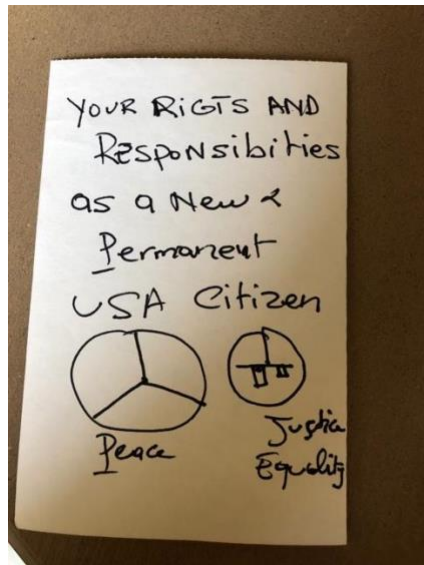 YOUR RIGTS AND
Responsibities
as a New &
Permanent
USA Citizen
Peace
Justice
Equality